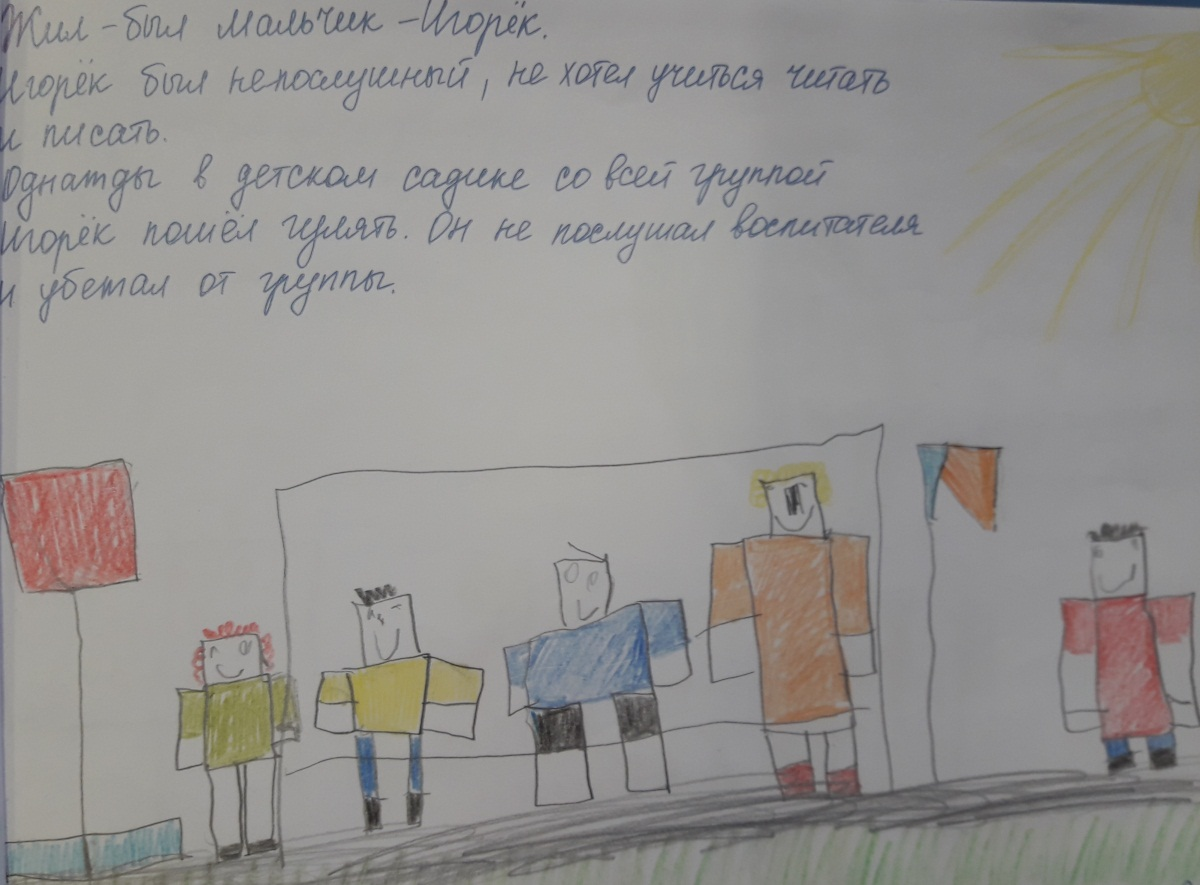 Жил-был мальчик - Игорёк.
Игорёк был непослушный, не хотел учиться читать
и писать.
Однажды в детском садике со всей группой
Игорёк пошёл гулять. Он не послушал воспитателя
и убежал от группы.